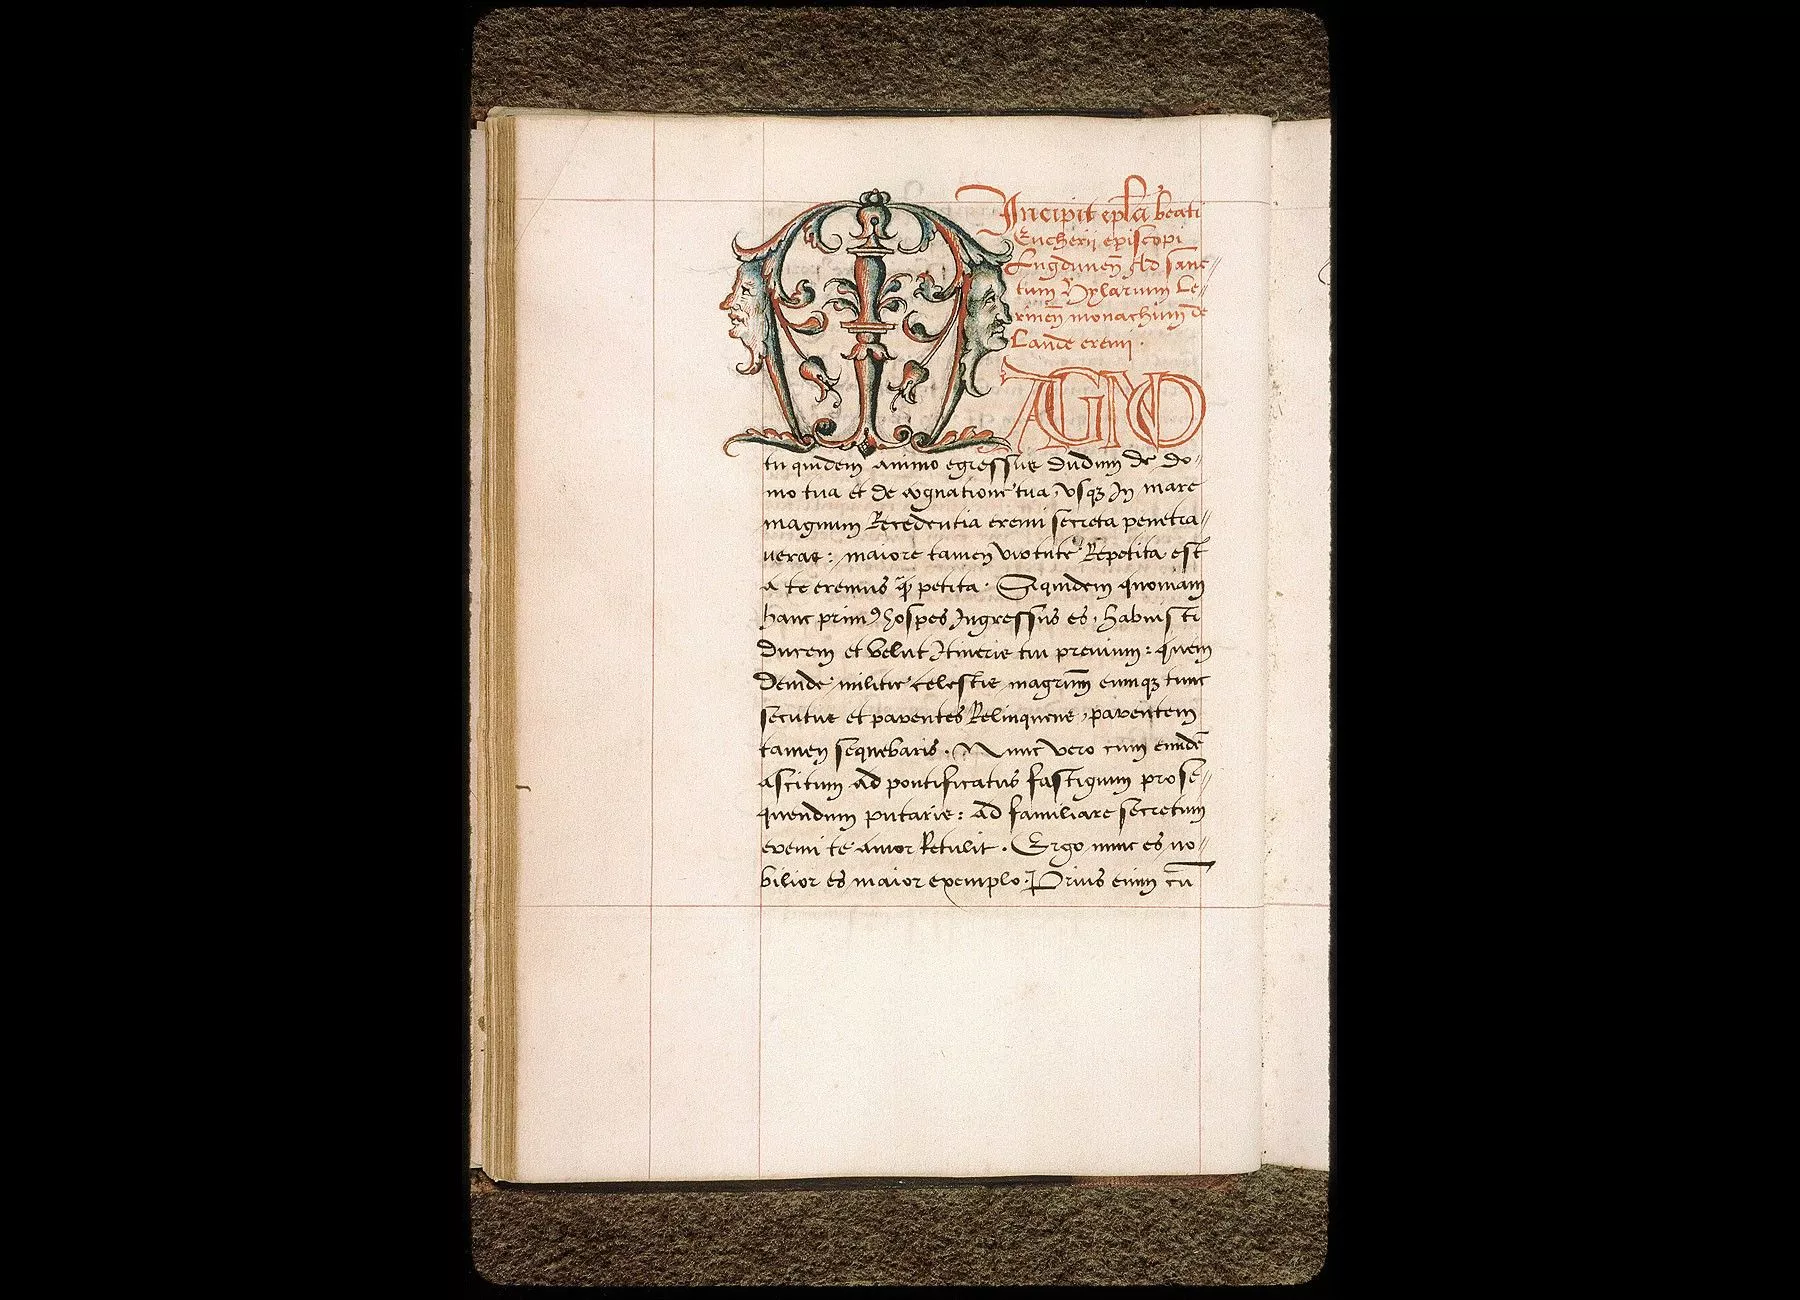 Incipit epl̄a beati
Eucherij episcopi
Lugdunen̄ Ad sanc-
tum Hylarium Le-
rinen̄ monachum de
Laude eremi.
MAGNO
tu quidem animo egressus dudum de do-
mo tua et de cognatione tua, vsqꝫ In mare
magnum Recedentia eremi secreta penetra-
ueras: maiore tamen virtute Repetita est
a te eremus q̄ petita. Siquidem quoniam
hanc primꝰ hospes Ingressus es, habuisti
ducem et velut Itineris tui previum: quem
deinde militie celestis magr̄um eumqꝫ tunc
secutus et parentes Relinquens, parentem
tamen sequebaris. Nunc vero cum eundē
ascitum ad pontificatus fastigium prose-
quendum putaris: ad familiare secretum
eremi te amor Retulit. Ergo nunc es no-
bilior es maior exemplo. Prius enim cū